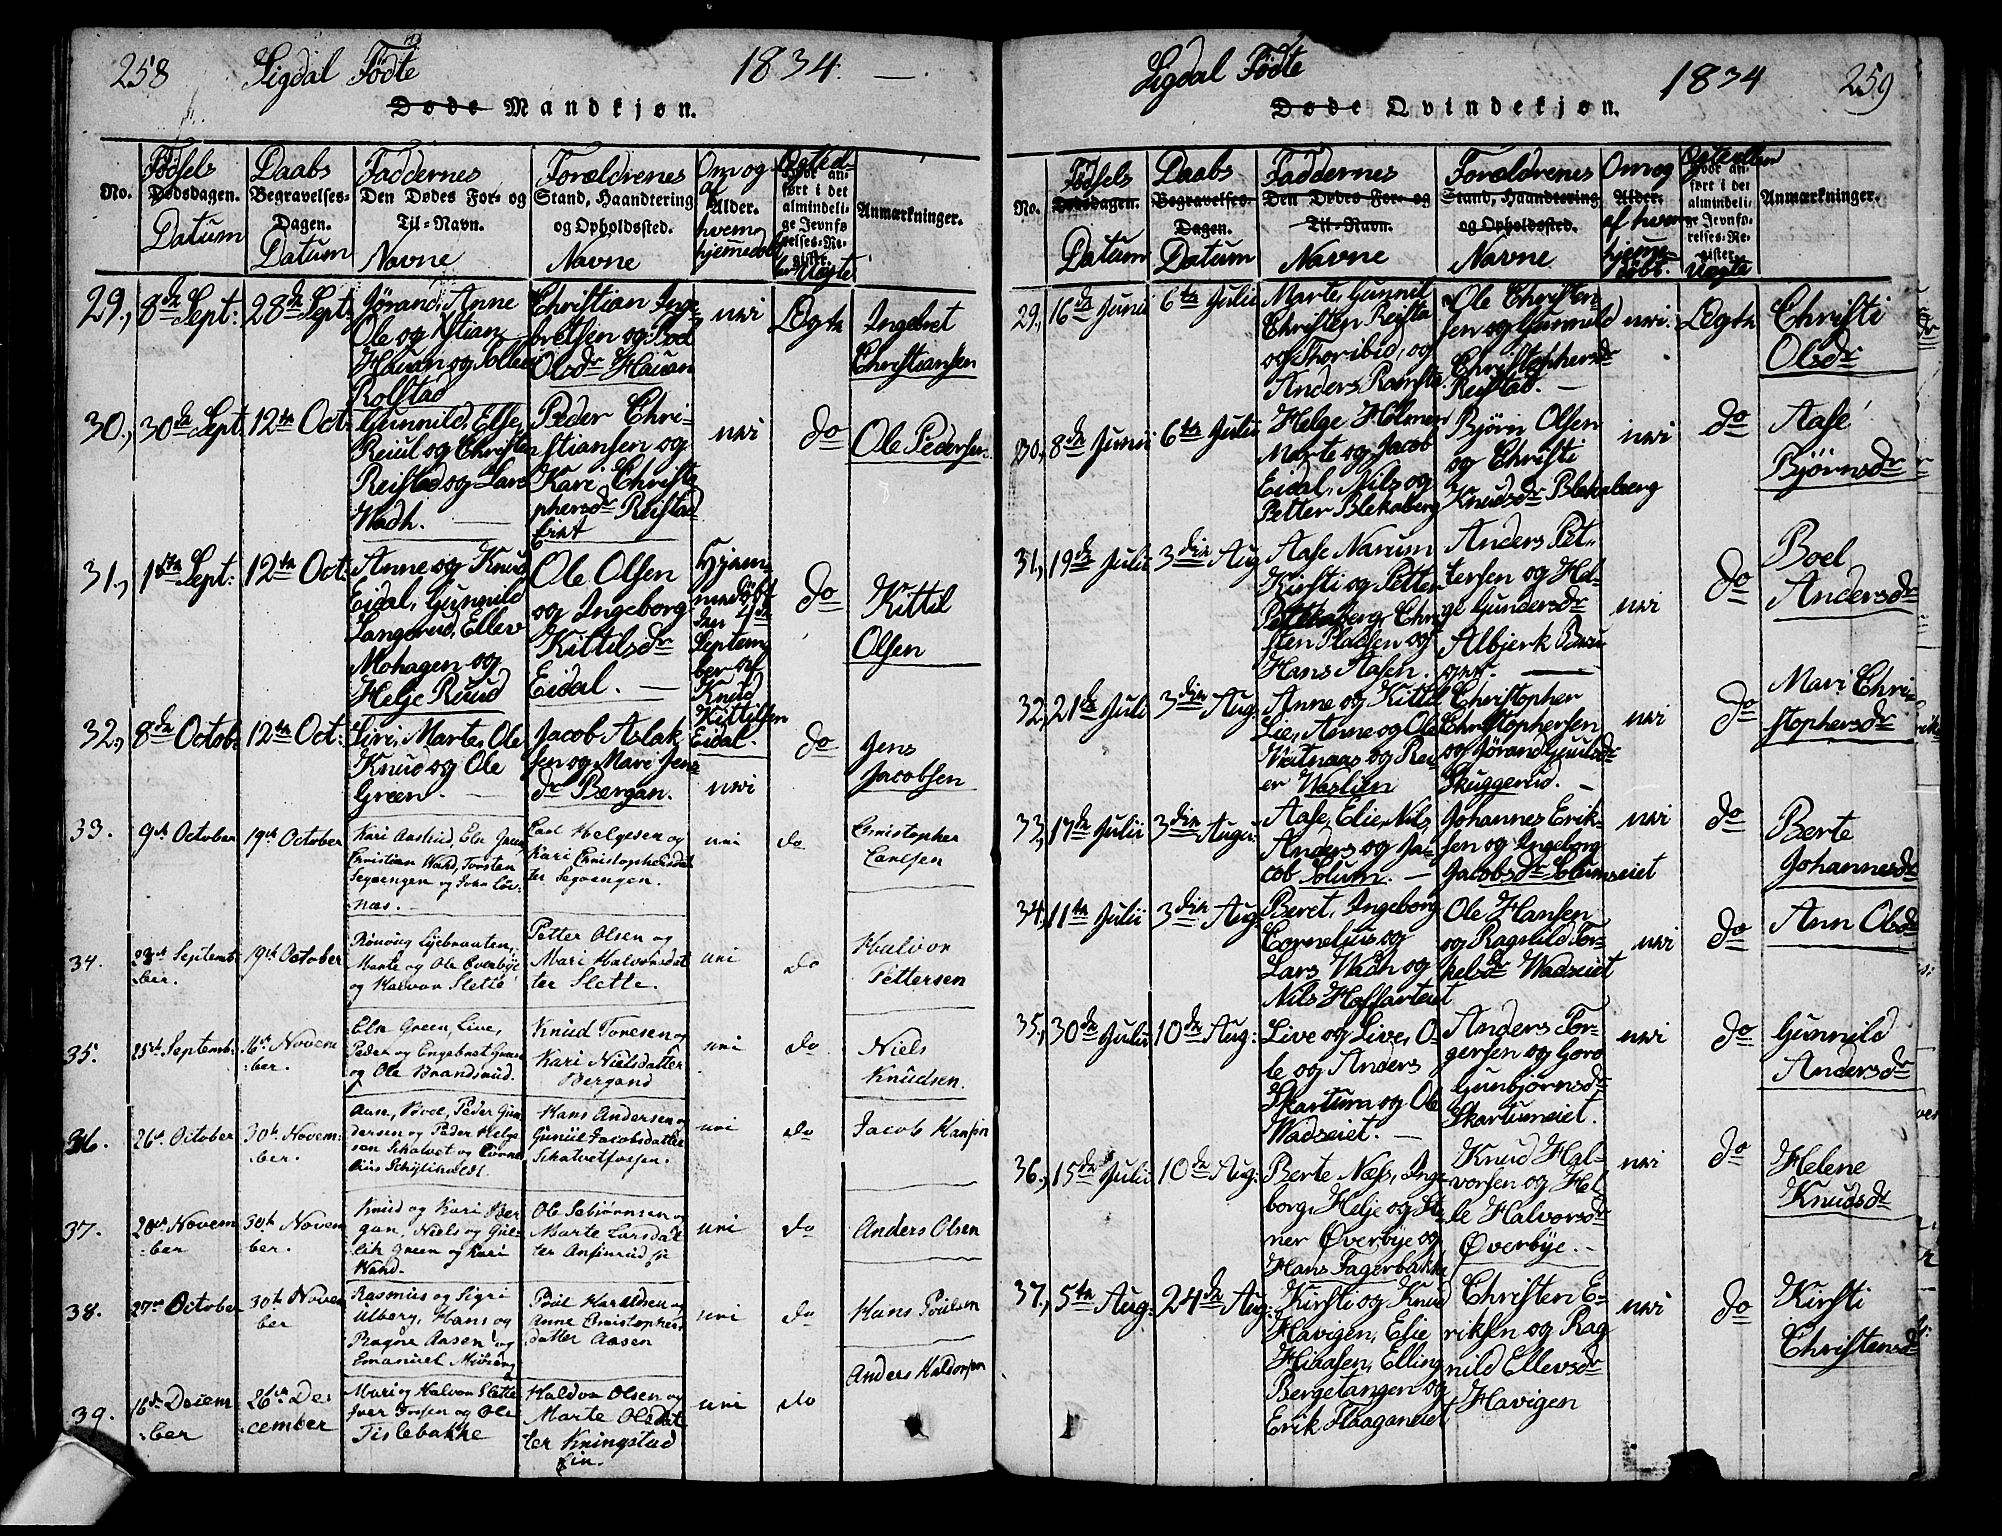 258 Sigdal Fødte 1834. —
Døde Mandkjøn.
No.
Fødsels
Dødsdagen.
Datum
Daabs
Begravelses-
Dagen.
Datum
Faddernes
Den Dødes For- og
Til-Navn.
Navne
Forældrenes
Stand, Haandtering
og Opholdssted.
Navne
Om og
af
Alder.
hvem
hjemmedøbt
hvor an-
ført i det
almindeli-
ge Jevnfø-
relses-Re-
gister.
Uægte
Anmærkninger.
29., 8de Sept: 28de Sept:
Jørand, Anne
Ole og Kstian
Hauan og
Rolstad
Christian Inge-
bretsen og Boel
Olsdr Hauan
nei
Ægte
Ingebret
Christiansen
30., 30de Sept 12te Oct:
Gunnild, Else,
Reiul og Christen
Reistad og Lars
Wadh. —
Peder Chri-
stiansen og
Kari Christo-
phersdr Reistad
Eiet
nei
do
Ole Pedersen
31., 1ste Sept: 12te Oct:
Anne og Knud
Eidal, Gunnild
Langerud, Ellev
Mohagen og
Helje Ruud
Ole Olsen
og Ingeborg
Kittilsdr
Eidal. —
Hjem-
medøbt
den
Septem
ber af
Knud
Kittilsen
Eidal.
do
Kittil
Olsen
32., 8de Octob: 12te Oct:
Siri, Marte, Ole
Knud og Ole
Green. —
Jacob Aslak-
sen og Mari Jens-
dr Bergan.
nei
do
Jens
Jacobsen
33. 9de October 19de October
Kari Aasrud, Else Green,
Christian Wahd, Torsten
Segvengen og John Løv-
næs. —
Carl Helgesen og
Kari Christophersdat
ter Segvengen.
nei
do
Christopher
Carlsen
34. 23de Septemb-
ber. 19de October
Rønoug Lyebraaten,
Marte og Ole Overbye
og Halvor Slette
Petter Olsen og
Mari Halvorsdat
ter Slette.
nei
do
Halvor
Pettersen
35. 25de Septemb. 16de Novem
ber.
Else Green, Live,
Peder og Engebret Green
og Ole Brandsrud.
Knud Toresen og
Kari Nielsdatter
Bergand
nei
do
Niels
Knudsen.
36. 26de October 30te Novem-
ber.
Aase, Boel, Peder Gun
dersen og Peder Helge
sen Schalvet og Corne
lius Schiftholdt.
Hans Andersen og
Guniil Jacobsdatter
Schalvetfossen.
nei
do
Jacob Hansøn
37. 20de Novem
ber 30te Novem
ber.
Knud og Kari Ber
gan, Niels og Gul
lik Green og Kari
Wahd.
Ole Asbiørnsen og
Marte Larsdat
ter Ansinrud
nei
do
Anders Olsen
38. 27de October 30te Novem
ber
Rasmus og Sigri
Ulberg, Hans og
Ragne Aasen og
Emanuel
Poul Haraldsen og
Anne Christophers
datter Aasen
nei
do
Hans Poulsen
39. 16de Decem
ber 26de De-
cember
Mari og Halvor Slette
Iver Fossen og Ole
Tislebakke
Haldor Olsen og
Marte Olsdat
ter Kningstad
Ein.
nei
do
Anders Haldorsøn
Sigdal Fødte 1834 259
Døde Qvindekjøn.
No.
Fødsels
Dødsdagen.
Datum
Daabs
Begravelses-
Dagen.
Datum
Faddernes
Den Dødes For- og
Til-Navn.
Navne
Forældrenes
Stand, Haandtering
og Opholdssted.
Navne
Om og
Alder.
af hvem
hjem-
døbt.
hvor an-
ført i det
almindeli-
ge Jevnfø-
relses-Re-
gister.
Uægte
Anmærkninger.
29., 16de Junii 6te Julii
Marte, Gunnil
Christen Reista
og Thoribid, og
Anders Ramsta
Ole Christen-
sen og Gunnild
Christophersdr
Reistad. —
nei.
Ægte
Christi
Olsdr
30., 8de Junii 6te Julii
Helge Holmen
Marte og Jacob
Eidal, Nils og
Petter Blekaberg
Bjørn Olsen
og Christi
Knudsdr Blekaberg
nei
do
Aase
Bjørnsdr
31., 19de Julii 3die Aug
Aase Narum
Kirsti og Petter
Blekaberg, Chri-
sten Pladsen og
Hans Aasen.
Anders Pet-
tersen og Hel-
ge Gundersdr
Albjerk
nei
do
Boel
Andersdr
32., 21de Juli 3die Aug:
Anne og Kittil
Lie, Anne og Ole
Veitnaas og Rei-
er Waslien
Christopher
Christophersen
og Jørand Gulsdr
Skuggerud. —
nei
do
Mari Chri-
stophersdr
33., 17de Julii 3die August
Aase, Elie, Nils,
Anders og Ja-
cob Solum. —
Johannes Erik-
sen og Ingeborg
Jacobsdr Solumseiet
nei
do
Berte
Johannesdr
34., 11te Julii 3die Aug:
Beret, Ingeborg
Cornelius og
Lars Wadh og
Nils Hoffarteiet
Ole Hansen
og Ragnild Tor-
kelsdr Wadseiet
nei
do
Ann Olsdr
35., 30de Julii 10de Aug:
Live og Live, O-
le og Anders
Skartum og Ole
Wadseiet. —
Anders Tor-
gersen og Goro
Gunbjørnsdr
Skartumeiet.
nei
do
Gunnild
Andersdr
36., 15de Julii 10de Aug:
Berte Næss, Inge-
borg, Helje og
ner Øverbye og
Hans Fagerbakke
Knud Hal-
vorsen og Hel-
le Halvorsdr
Øverbye. —
nei
do
Helene
Knudsdr
37., 5te Aug: 24de Aug:
Kirsti og Knud
Havigen, Elie
Hiaasen, Elling
Bergetangen og
Erik Flaaganeiet
Christen E-
riksen og Rag
nild Ellevsdr
Havigen
nei
do
Kirsti
Christensdr